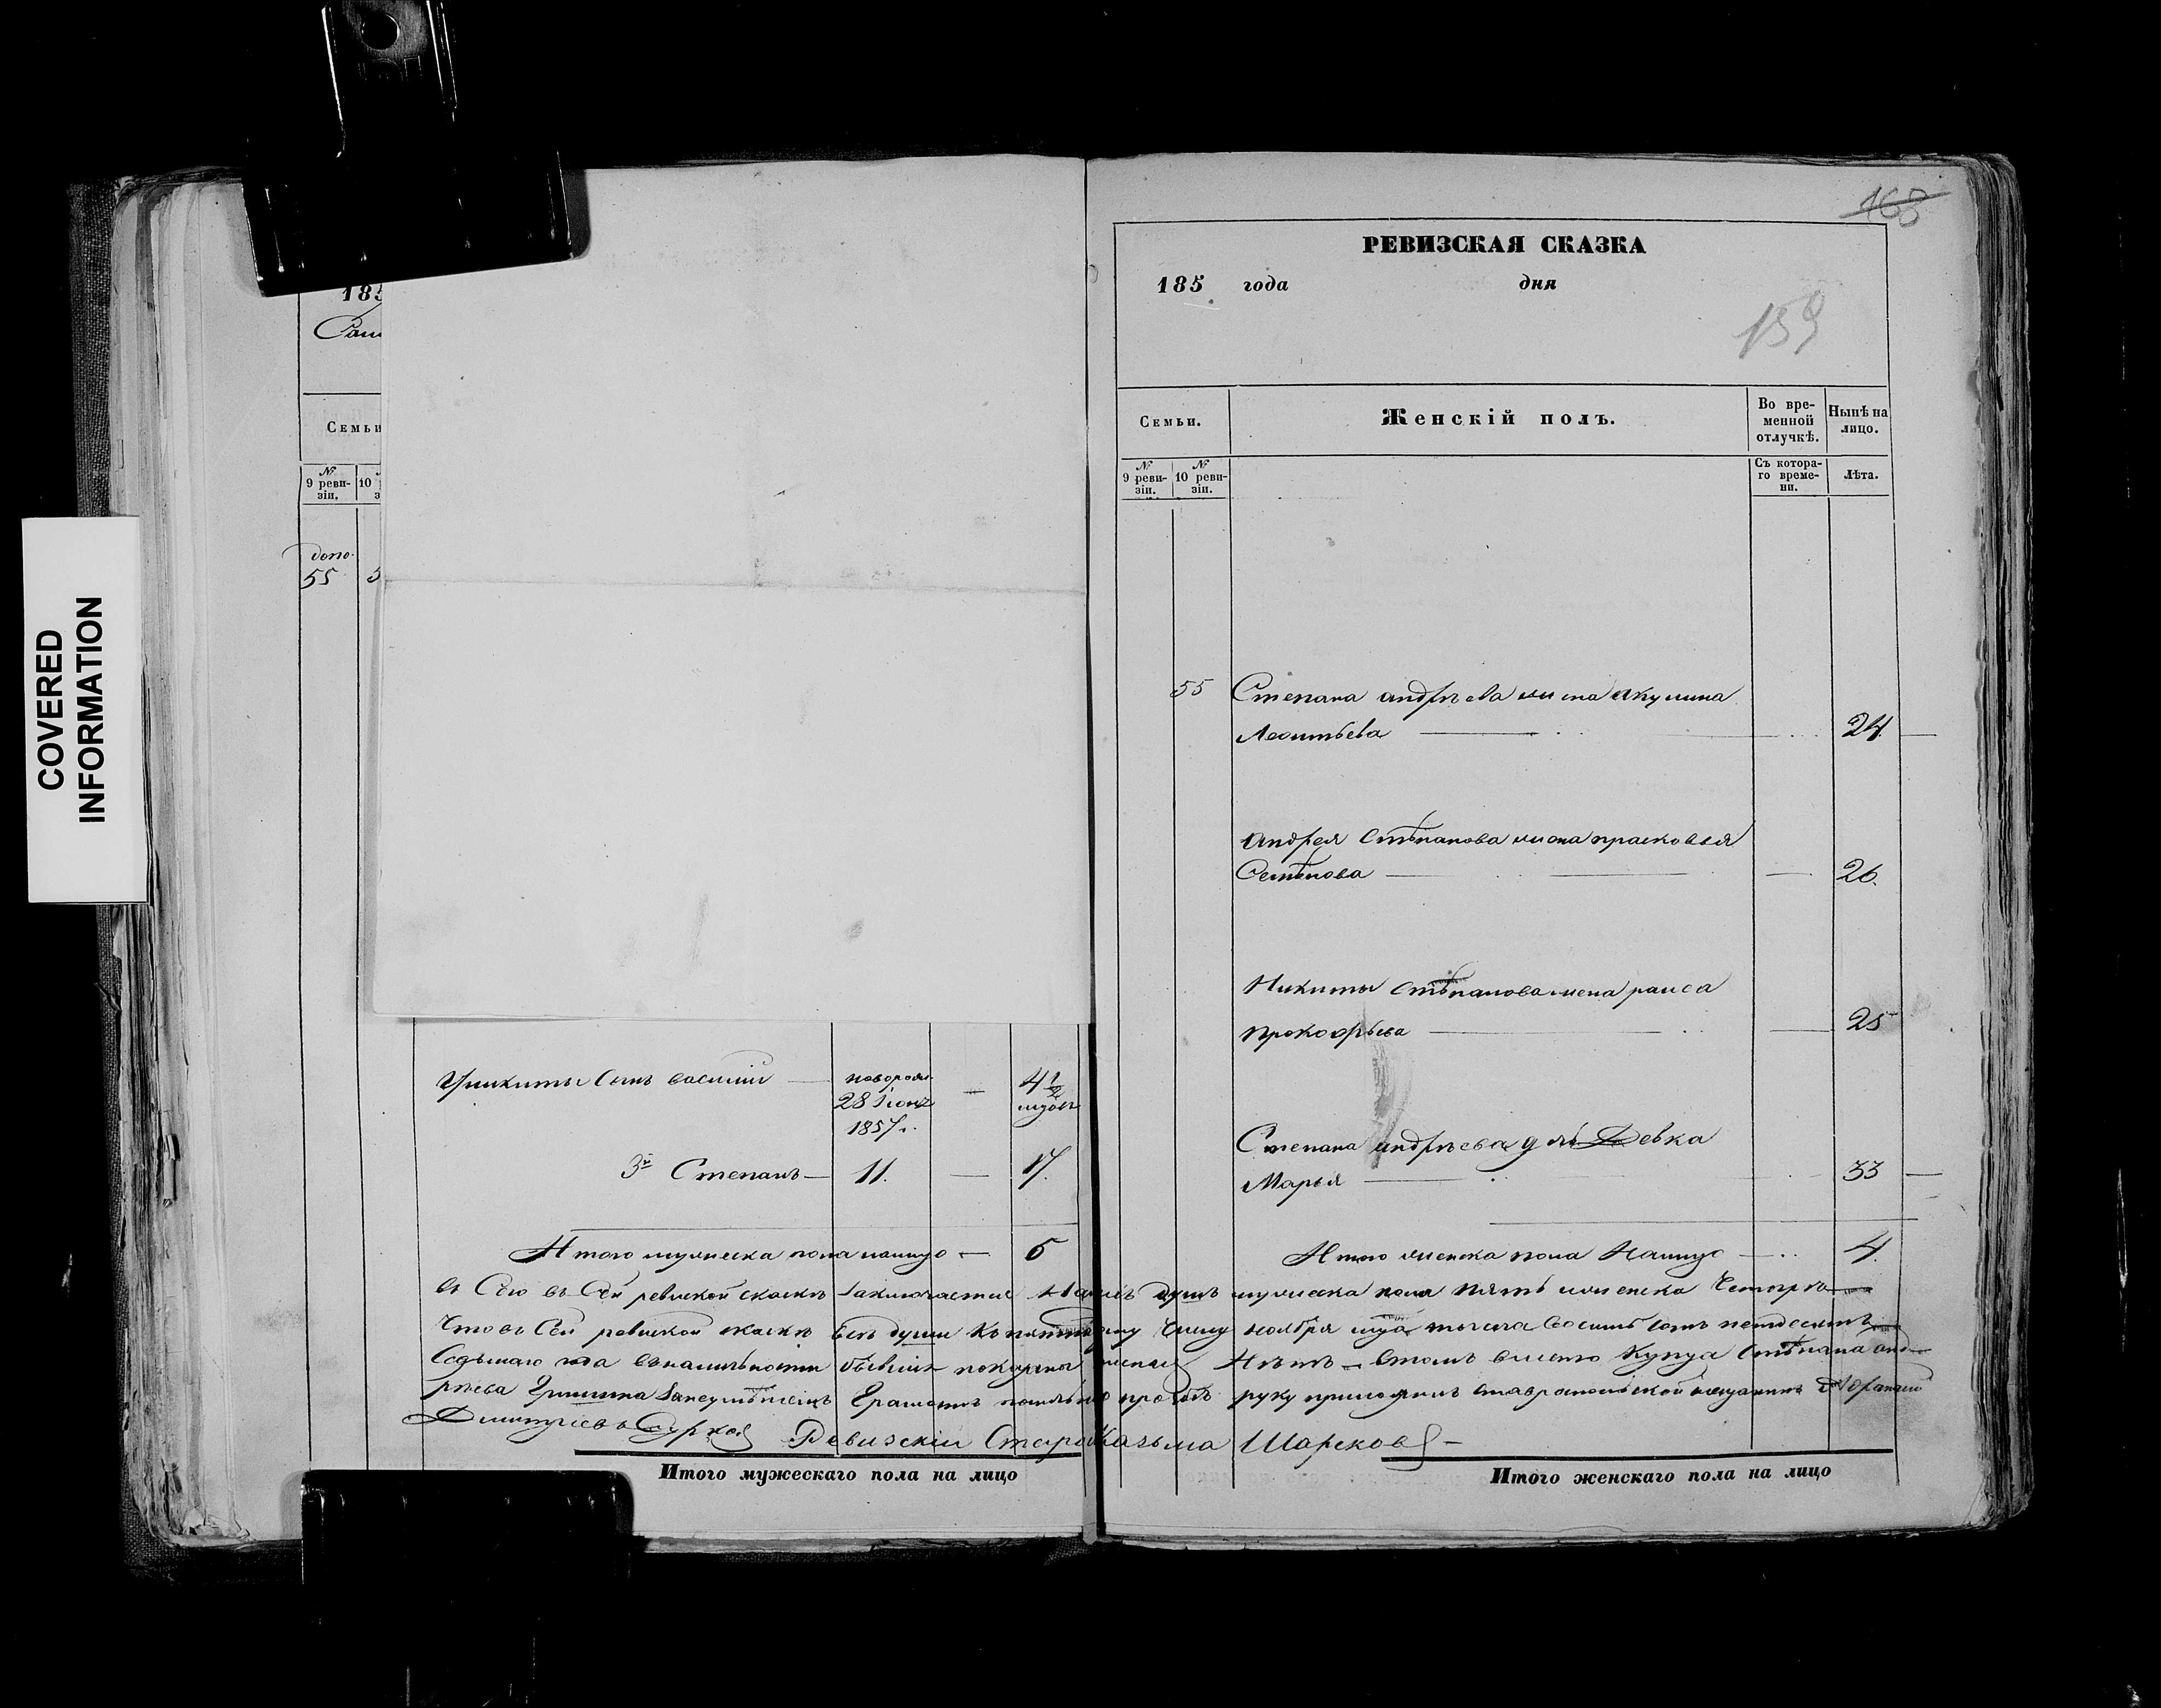 COVERED
INFORMATION
185
Сам
Семьи
№
9 реви-
зіи.
10
допо.
55 5
Уникиты Сынъ василій — новорож. — 4 1/2
28 Іюня мѣс
1857.
3й Степанъ — 11. — 17.
Итого мужеска пола налицо — 5
Итого мужескаго пола на лицо
168
РЕВИЗСКАЯ СКАЗКА
185 года дня
159
Семьи.
Женскій полъ.
Во вре-
менной
отлучкѣ.
Нынѣ на
лицо.
№
9 реви-
зіи.
№
10 реви-
зіи.
Съ котора-
го време-
ни.
Лѣта.
55 Степана андрѣева жена акулина
Леонтьева — 24.
андрея Стѣпанова жена прасковья
Семѣнова — 26.
Никиты Стѣпанова жена раиса
прокофьева — 25
Степана андрѣева дчь Девка
Марья — 33
Итого женска пола Налицо — 4.
въ Сей ревиской скаскѣ заключается душъ мужеска пола пять женска Четыре
Что въ Сей ревиской скаскѣ Всѣ души Къ числу ноября тысяча Восимь сотъ
Седьмаго года въналичности бывшія показаны Нѣтъ — вмѣсто Купца Стѣпана анд-
рѣева Грамоте по прозбѣ руку приложилъ ставропольской мещанинъ
Дмитріевъ Сурков Ревизскій Староста Казьма Шарсков
Итого женскаго пола на лицо